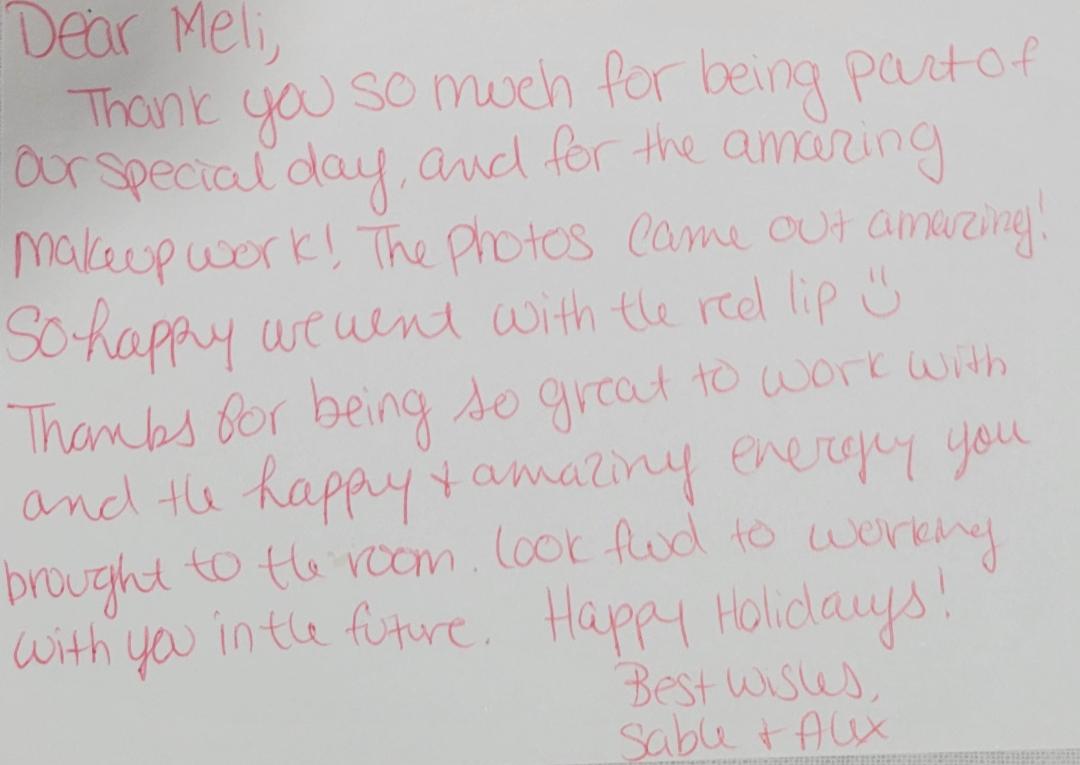 Dear Meli,
Thank you so much for being part of
our special day, and for the amazing
makeup work! The photos came out amazing!
So happy we went with the red lip :)
Thanks for being so great to work with
and the happy + amazing energy you
brought to the room. Look fwd to working
with you in the future. Happy Holidays!
Best Wishes,
Sable + Alex